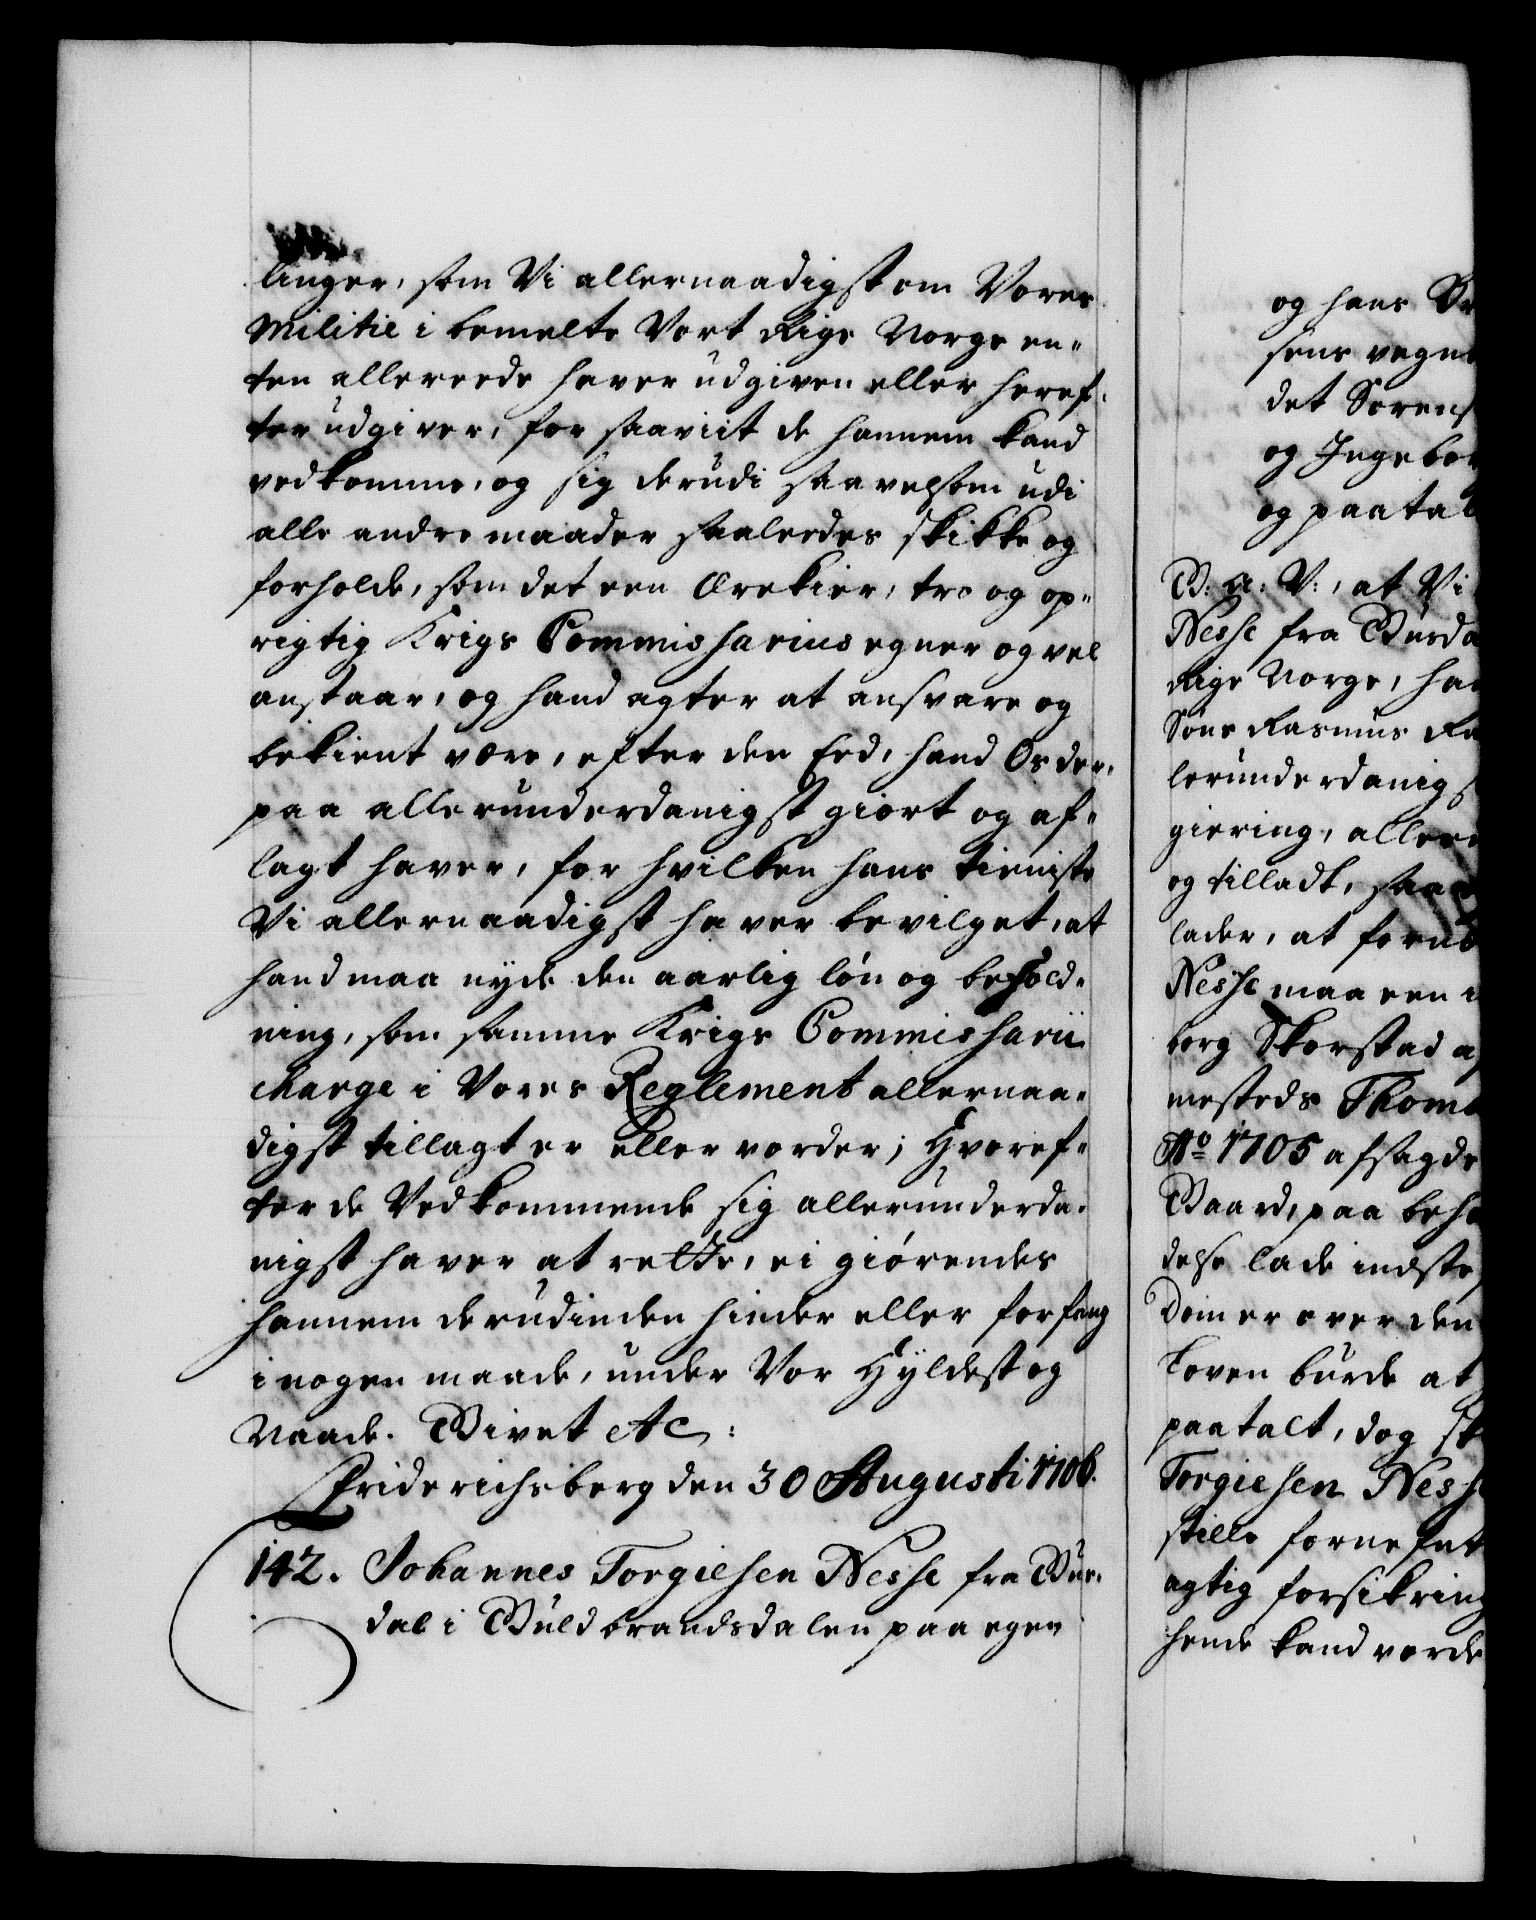 linger, som Vi allernaadigst om Vores
Militie i bemelte Vort Rige Norge en-
ten allereede haver udgiven eller heref-
ter udgiver, for saaviit de hannem kand
vedkomme, og sig derudi saavelsom udi
alle andre maader saaledes skikke og
forholde, som det een Ærekier, tro og op-
rigtig Krigs Commissarius egner og vel
anstaar, og hand agter at ansvare og
bekient være, efter den Eed, hand Os der-
paa allerunderdanigst giort og af-
lagt haver, for hvilken hans tieniste
Vi allernaadigst haver bevilget, at
hand maa nyde den aarlig løn og behold-
ning, som samme Krigs Commissarii
charge i Vores Reglement allernaa-
digst tillagt er eller vorder; Hvoref-
ter de Vedkommende sig allerunderda-
nigst haver at rette, ei giörendes
hannem derudinden hinder eller forfang
i nogen maade, under Vor Hyldest og
Naade. Givet etc:
Friderichsberg den 30 Augusti 1706.
142. Johannes Torgiesen Nesse fra Gus-
dal i Guldbrandsdalen paa egen
og hans
sens vegne
det Sørens
og Ingebor
og paatal
G: A: V:, at Vi
Nesse fra Gusda
Rige Norge, ha
Søns Rasmus Ra
lerunderdanigs
giering, aller
og tilladt, saa
lader, at forn
Nesse maa een
borg Skorstad
mesteds Thom
Ao 1705 afsagde
Gaard, paa beh
delse lade indste
Dom er over den
Loven burde at
paatalt, dog sk
Torgiesen Ness
stille fornefnt
agtig forsikring
hende kand vorde